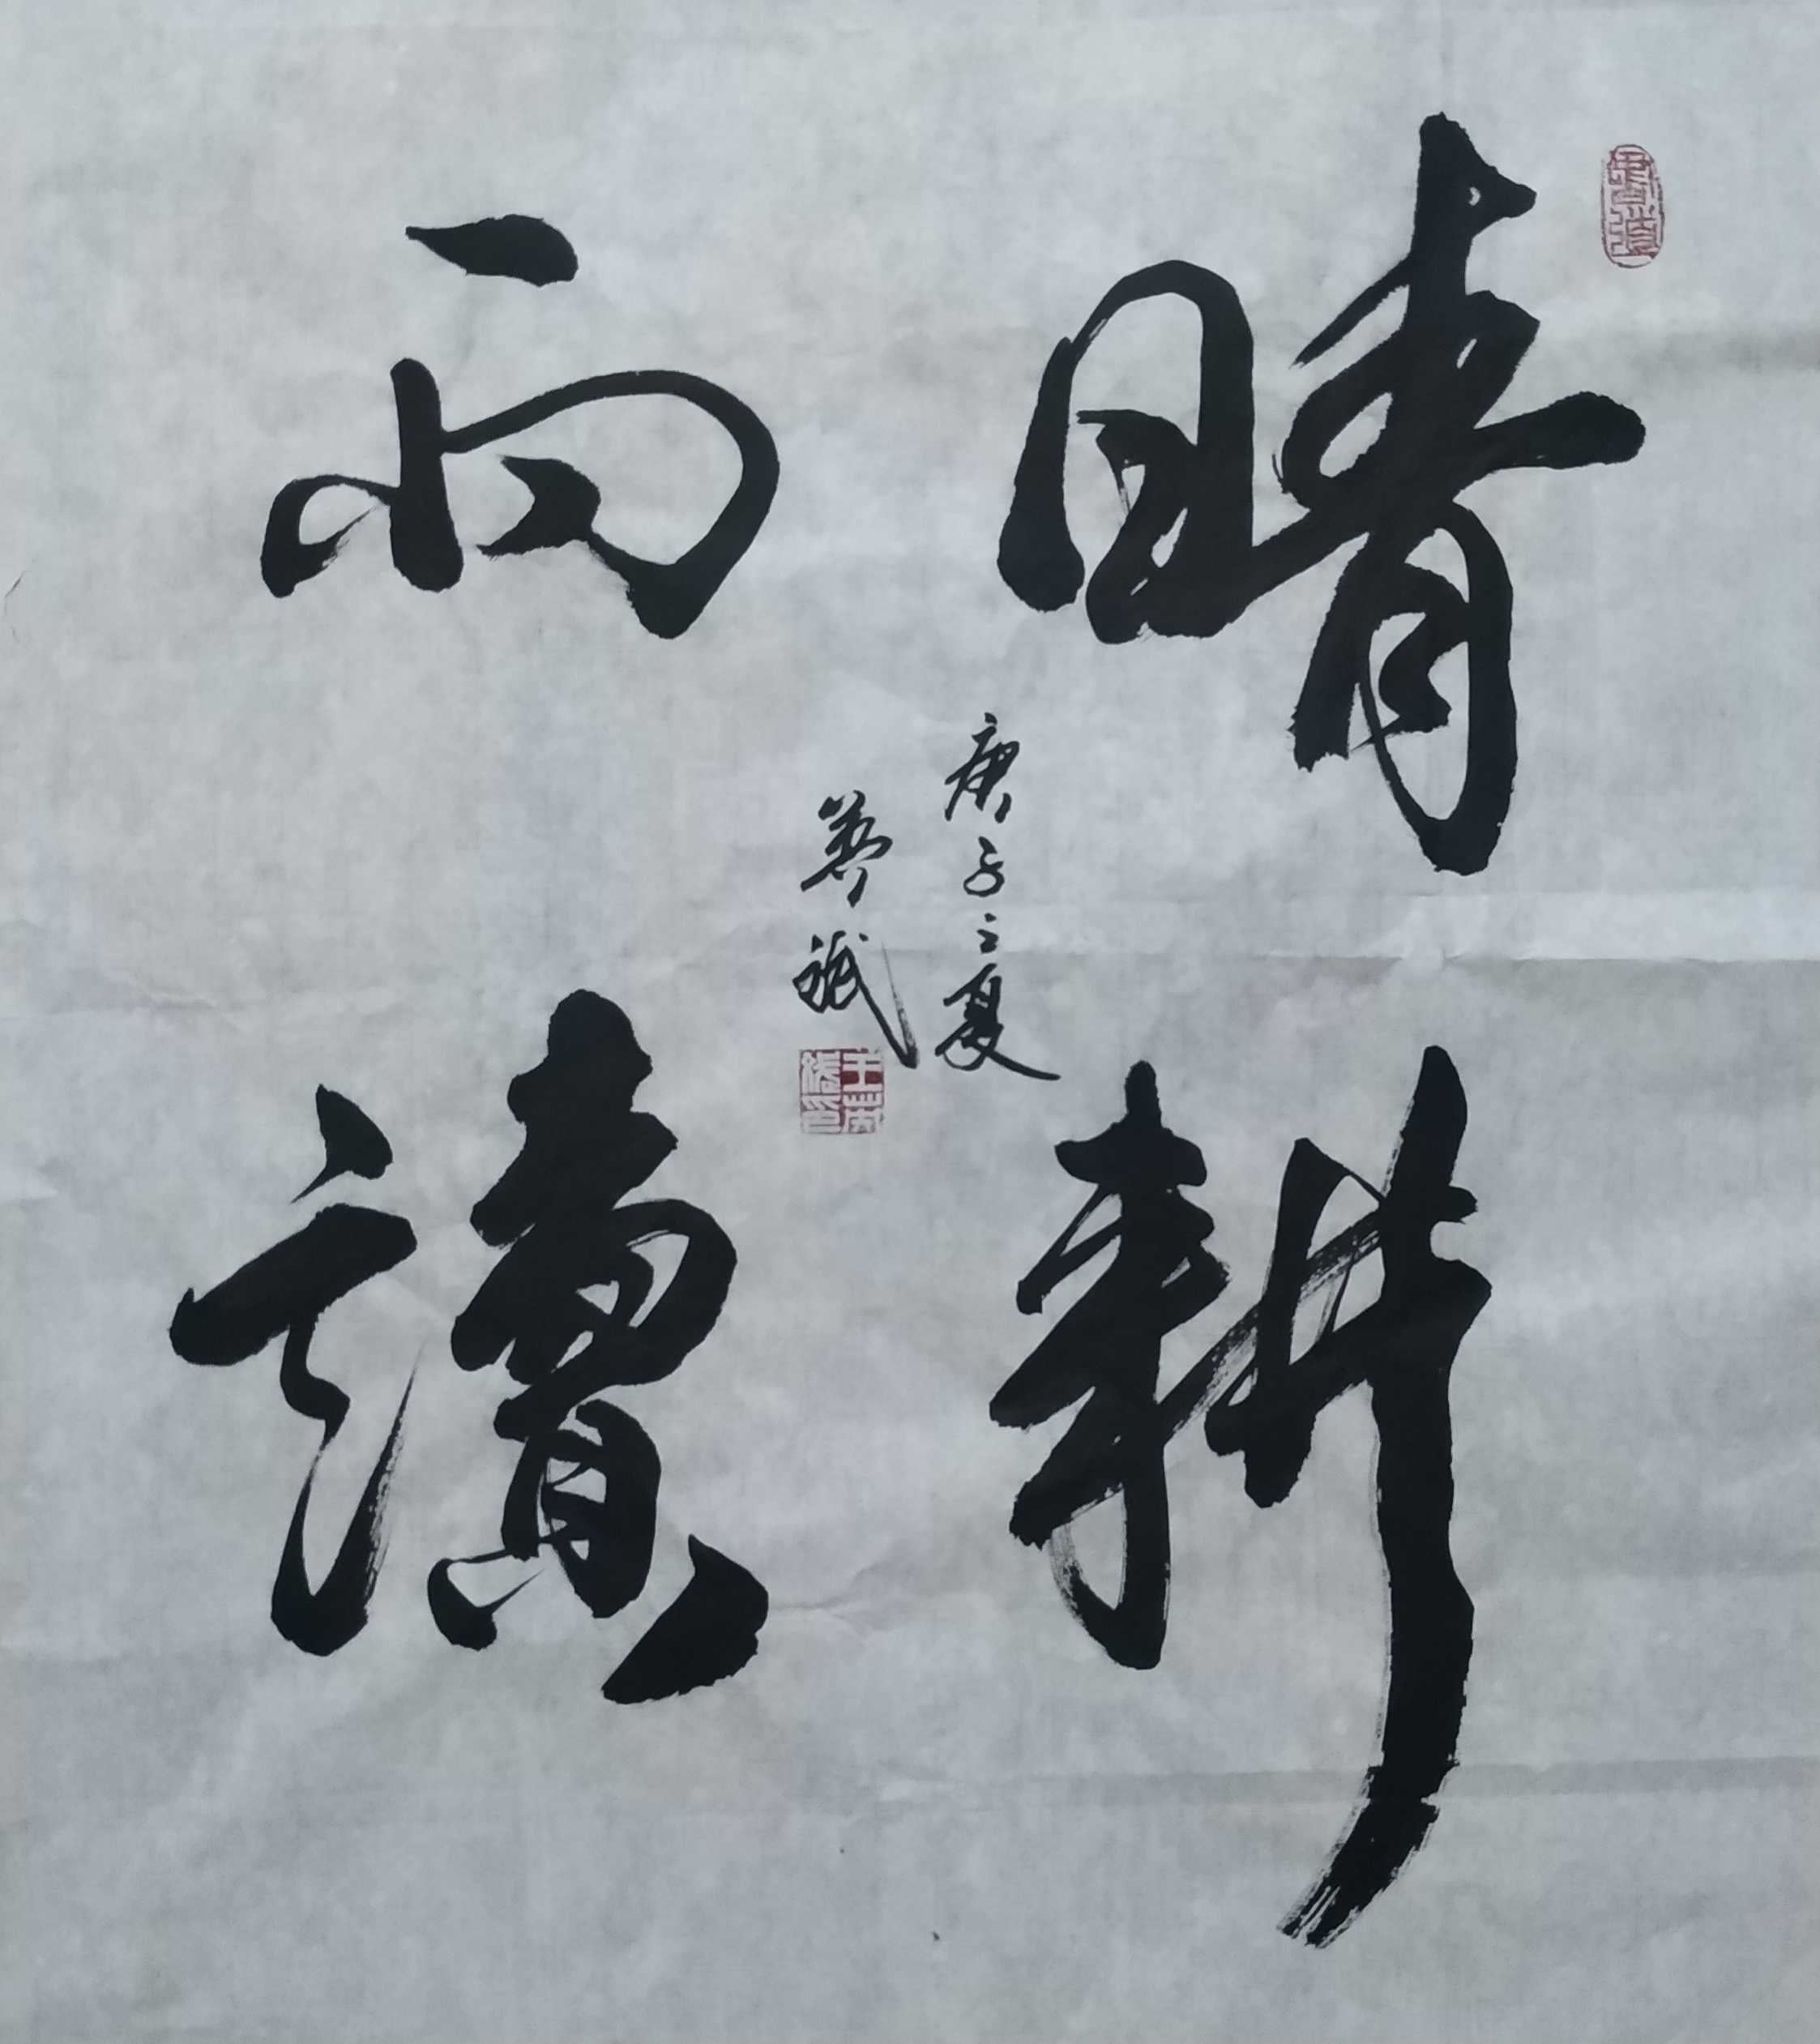 晴耕
雨讀
庚子之夏